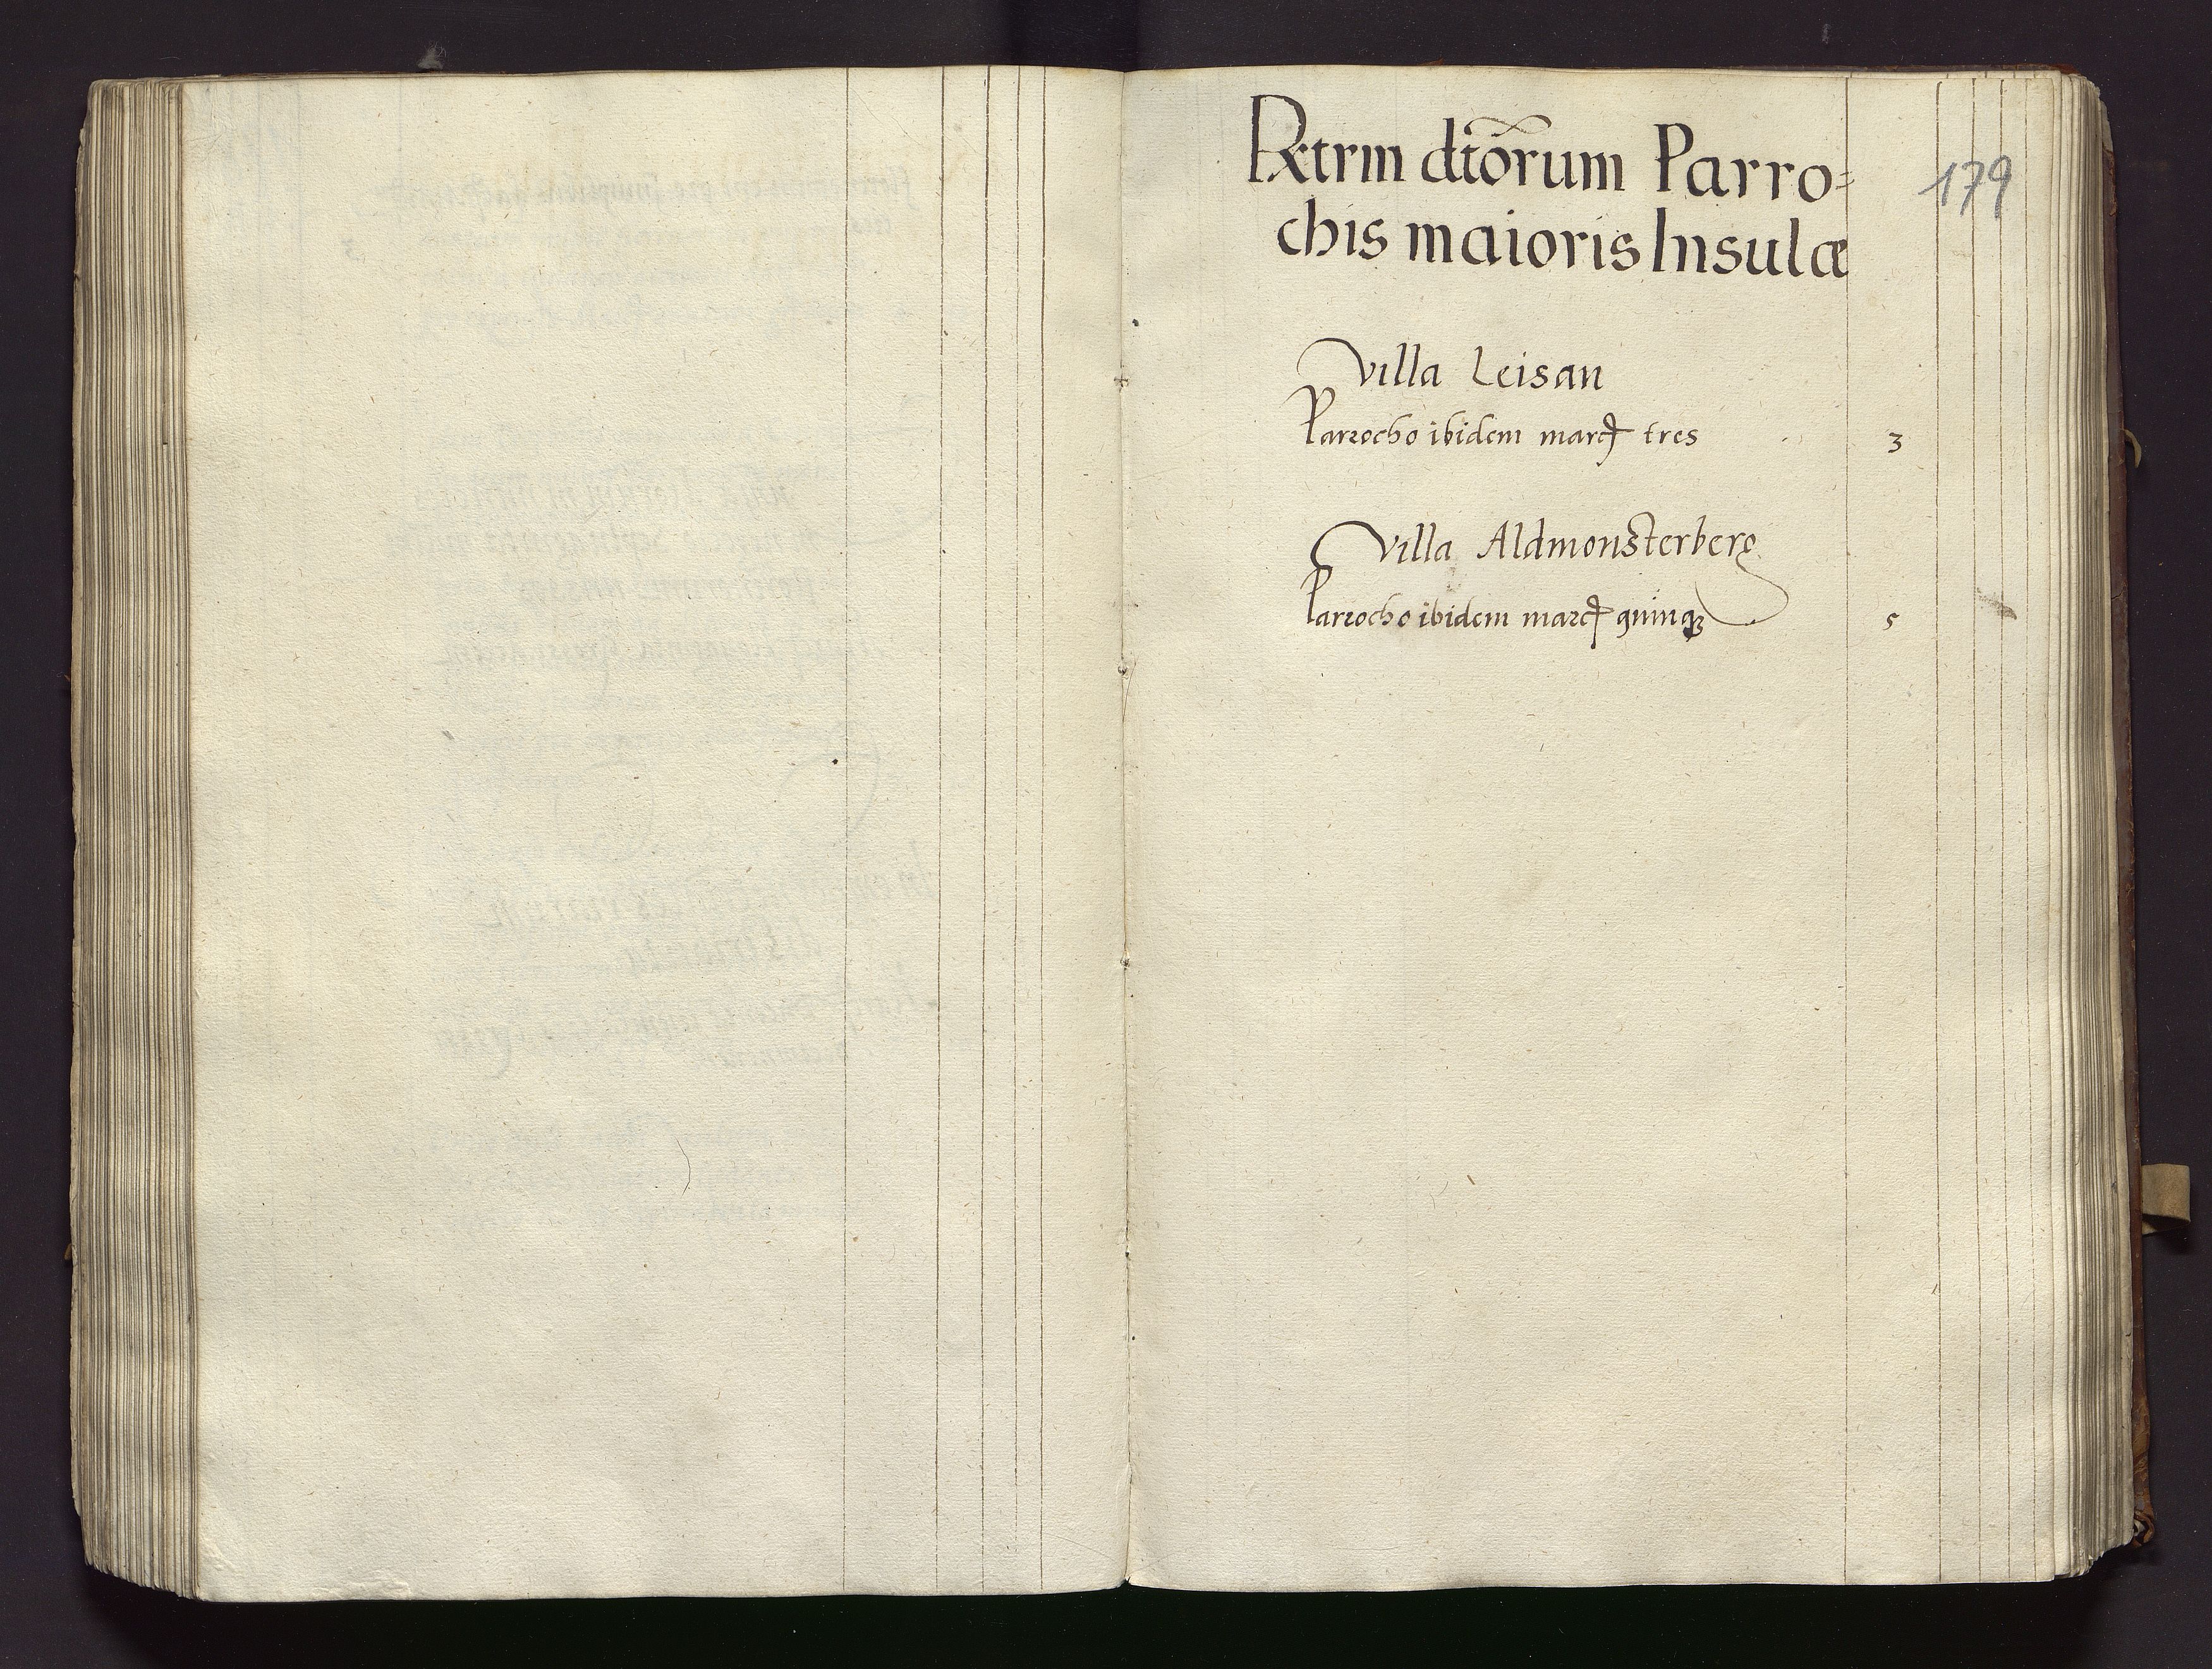 Extrm dtõrum Parro=
chis maioris Insulæ
179
Villa Leisan
Parrocho ibidem marcȝ tres 3
Villa Aldmonsterberg
Parrocho ibidem marcȝ quinqȝ 5